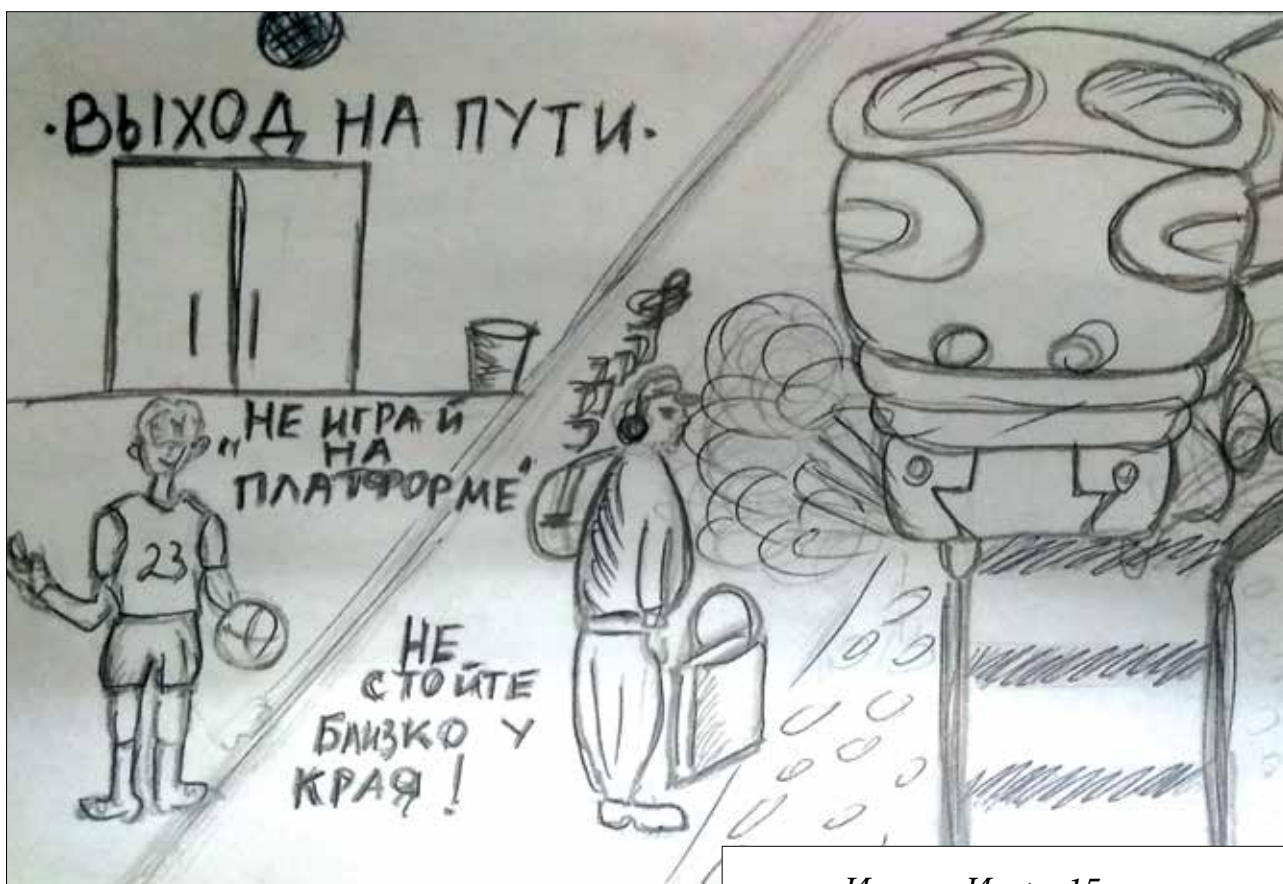 ·ВЫХОД НА ПУТИ·
„НЕ ИГРАЙ
НА
ПЛАТФОРМЕ"
23
НЕ
СТОЙТЕ
БЛИЗКО У
КРАЯ!